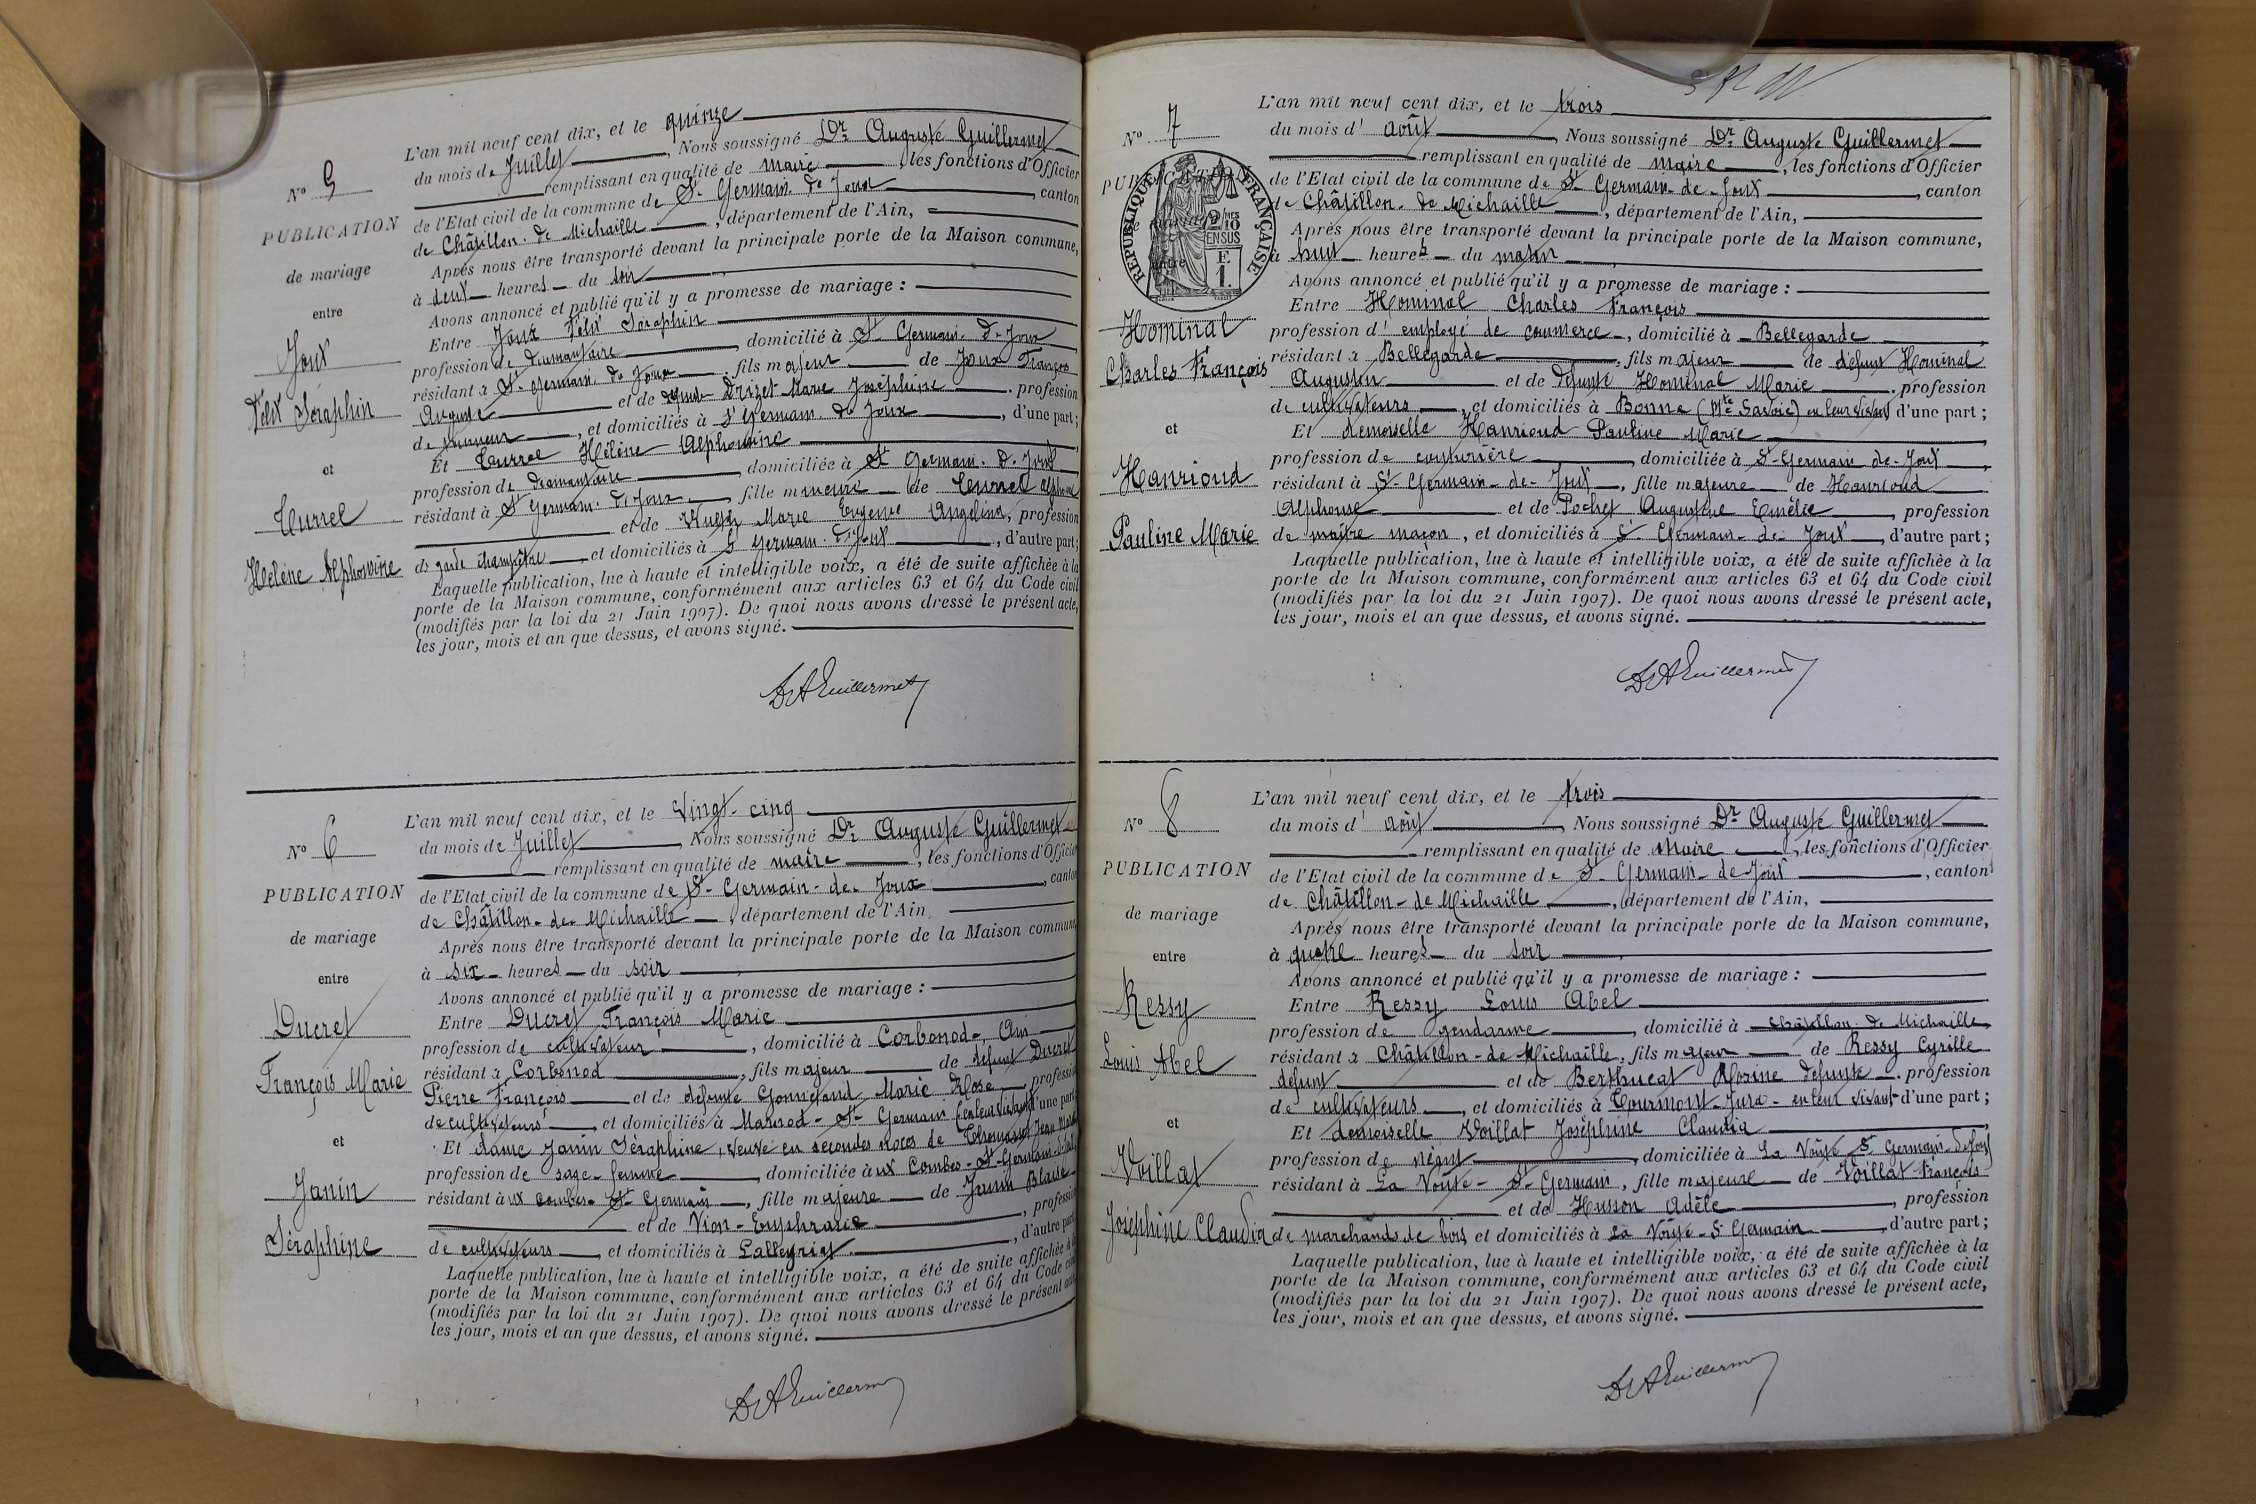 L'an mil neuf cent dix, et le quinze
du mois de Juillet, Nous soussigné Dr Auguste Guillermet
N° 5
remplissant en qualité de maire, les fonctions d'Officier
de l'Etat civil de la commune de St Germain-de-Joux, canton
PUBLICATION
de Châtillon-de-Michaille, département de l'Ain,
Après nous être transporté devant la principale porte de la Maison commune,
de mariage
à deux heures du soir
entre
Avons annoncé et publié qu'il y a promesse de mariage :
Entre Joux Félix Séraphin
Joux
profession de diamantaire, domicilié à St Germain-de-Joux
résidant à St Germain-de-Joux, fils majeur de Joux François
Félix Séraphin
Auguste et de défunte Drizet Marie Joséphine, profession
de mineur, et domiciliés à St Germain-de-Joux, d'une part ;
et
Et Turrel Hélène Alphonsine
profession de diamantaire, domiciliée à St Germain-de-Joux
Turrel
résidant à St Germain-de-Joux, fille mineure de Turrel Alphonse
et de Marie Eugénie Angelina, profession
Hélène Alphonsine
de garde champêtre, et domiciliés à St Germain-de-Joux, d'autre part ;
Laquelle publication, lue à haute et intelligible voix, a été de suite affichée à la
porte de la Maison commune, conformément aux articles 63 et 64 du Code civil
(modifiés par la loi du 21 Juin 1907). De quoi nous avons dressé le présent acte,
les jour, mois et an que dessus, et avons signé.
Dr A Guillermet
L'an mil neuf cent dix, et le vingt-cinq
du mois de Juillet, Nous soussigné Dr Auguste Guillermet
N° 6
remplissant en qualité de maire, les fonctions d'Officier
PUBLICATION
de l'Etat civil de la commune de St-Germain-de-Joux, canton
de Châtillon-de-Michaille, département de l'Ain,
de mariage
Après nous être transporté devant la principale porte de la Maison commune
entre
à six heures du soir
Avons annoncé et publié qu'il y a promesse de mariage :
Ducret
Entre Ducret François Marie
profession de cultivateur, domicilié à Corbonod, Ain
François Marie
résidant à Corbonod, fils majeur de défunt Ducret
Pierre François et de défunte Marie Rose, profession
de cultivateurs, et domiciliés à St Germain (en leur vivant) d'une part
et
Et dame Janin Séraphine, veuve en secondes noces de Thomasset Jean
profession de sage-femme, domiciliée aux Combes-St-Germain-de-Joux
Janin
résidant aux combes-St Germain, fille majeure de Janin Blaise
et de Vion-Euphrasie, profession
Séraphine
de cultivateurs, et domiciliés à Lalleyriat, d'autre part
Laquelle publication, lue à haute et intelligible voix, a été de suite affichée à la
porte de la Maison commune, conformément aux articles 63 et 64 du Code civil
(modifiés par la loi du 21 Juin 1907). De quoi nous avons dressé le présent acte
les jour, mois et an que dessus, et avons signé.
Dr A Guillermet
L'an mil neuf cent dix, et le trois
N° 7
du mois d'août, Nous soussigné Dr Auguste Guillermet
remplissant en qualité de maire, les fonctions d'Officier
PUBLICATION
RÉPUBLIQUE FRANÇAISE
2/10 EN SUS
F. 1.
de l'Etat civil de la commune de St Germain-de-Joux, canton
de Châtillon-de-Michaille, département de l'Ain,
Après nous être transporté devant la principale porte de la Maison commune,
entre
à huit heures du matin
Avons annoncé et publié qu'il y a promesse de mariage :
Entre Hominal Charles François
Hominal
profession d'employé de commerce, domicilié à Bellegarde
Charles François
résidant à Bellegarde, fils majeur de défunt Hominal
Augustin et de défunte Hominal Marie, profession
de cultivateurs, et domiciliés à Bonne (Hte Savoie) en leur vivant d'une part ;
et
Et demoiselle Hanrioud Pauline Marie
profession de couturière, domiciliée à St-Germain-de-Joux
Hanrioud
résidant à St-Germain-de-Joux, fille majeure de Hanrioud
Alphonse et de Pochet Augustine Emélie, profession
Pauline Marie
de maître maçon, et domiciliés à St-Germain-de-Joux, d'autre part ;
Laquelle publication, lue à haute et intelligible voix, a été de suite affichée à la
porte de la Maison commune, conformément aux articles 63 et 64 du Code civil
(modifiés par la loi du 21 Juin 1907). De quoi nous avons dressé le présent acte,
les jour, mois et an que dessus, et avons signé.
Dr A Guillermet
L'an mil neuf cent dix, et le trois
N° 8
du mois d'août, Nous soussigné Dr Auguste Guillermet
remplissant en qualité de Maire, les fonctions d'Officier
PUBLICATION
de l'Etat civil de la commune de St-Germain-de-Joux, canton
de Châtillon-de-Michaille, département de l'Ain,
de mariage
Après nous être transporté devant la principale porte de la Maison commune,
entre
à quatre heures du soir
Avons annoncé et publié qu'il y a promesse de mariage :
Ressy
Entre Ressy Louis Abel
profession de gendarme, domicilié à Châtillon-de-Michaille
Louis Abel
résidant à Châtillon-de-Michaille, fils majeur de Ressy Cyrille
défunt et de Berthucat Rosine défunte, profession
de cultivateurs, et domiciliés à Tourmont-Jura-en leur vivant d'une part ;
et
Et demoiselle Voillat Joséphine Claudia
Voillat
profession de néant, domiciliée à La Voûte St Germain-de-Joux
résidant à La Voûte-St-Germain, fille majeure de Voillat François
et de Husson Adèle, profession
Joséphine Claudia
de marchands de bois et domiciliés à La Voûte-St Germain, d'autre part ;
Laquelle publication, lue à haute et intelligible voix, a été de suite affichée à la
porte de la Maison commune, conformément aux articles 63 et 64 du Code civil
(modifiés par la loi du 21 Juin 1907). De quoi nous avons dressé le présent acte,
les jour, mois et an que dessus, et avons signé.
Dr A Guillermet